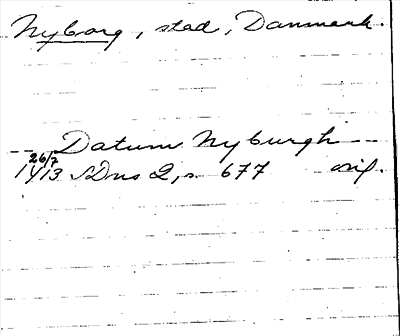 Nyborg, stad, Danmark.
-- Datum Nyburgh --
26/7
1413 SDns 2, s. 677 orig.